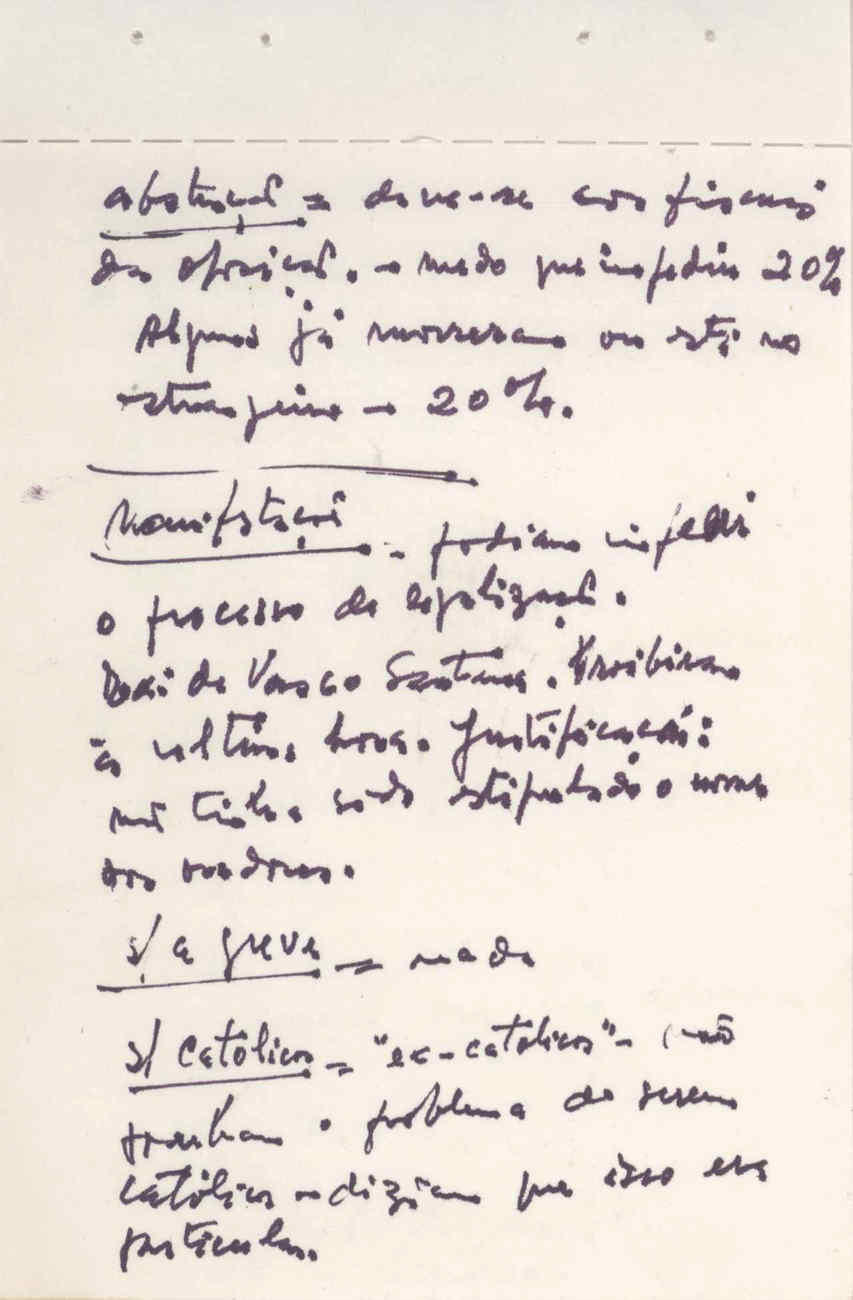 abstenção = deve-se aos fiscais
da oposição. - medo que impediu 20%
Alguns já morreram ou está no
estrangeiro - 20%.
Manifestação - podiam impedir
o processo de legalização.
de Vasco Santana. Proibiram
à última hora. Justificação:
não tinha sido estipulado o nome
dos oradores.
s/ a greve = nada
s/ católicos = "ex-católicos" - (não
punham o problema de serem
católicos - diziam que isso era
particular.